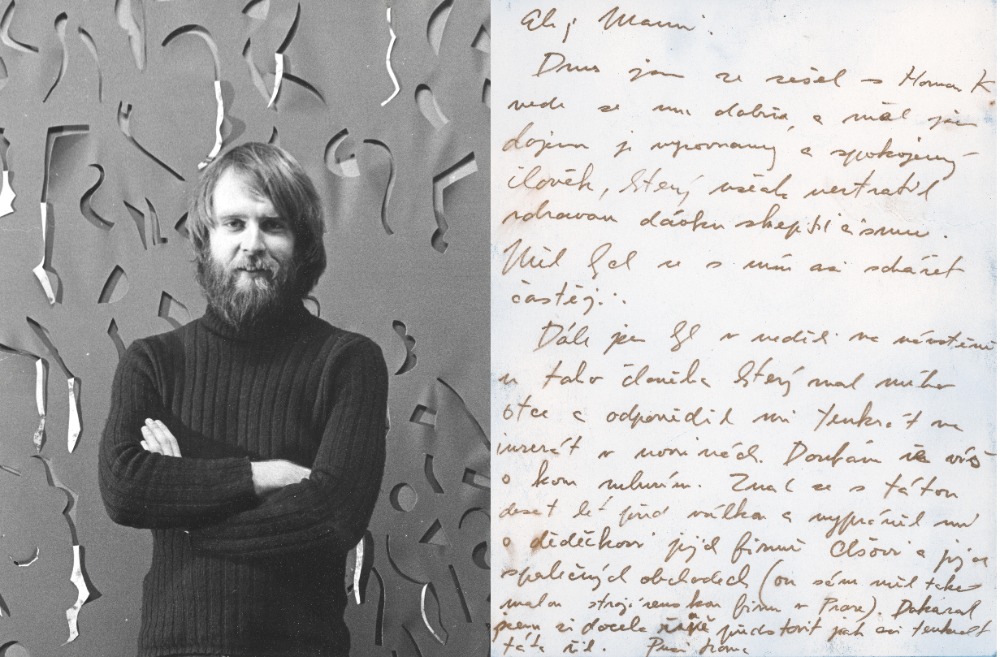 Ahoj Mami.
Dnes jsem se sešel s K
vede se mu dobře, a měl jsem
dojem je vyrovnaný a spokojený
člověk, který však neztratil
zdravou dávku skepticismu.
Měl bych se s ním asi scházet
častěj..
Dále jsem byl v neděli na návštěvě
u toho člověka který znal mého
otce a odpověděl mi tenkrát na
inzerát v novinách. Doufám že víš
o kom mluvím. Znal se s tátou
deset let před válkou a vyprávěl mi
o dědečkovi jejich firmě a jejich
společných obchodech (on sám měl také
malou strojírenskou firmu v Praze). Dokázal
jsem si docela představit jak asi tenkrát
táta žil.